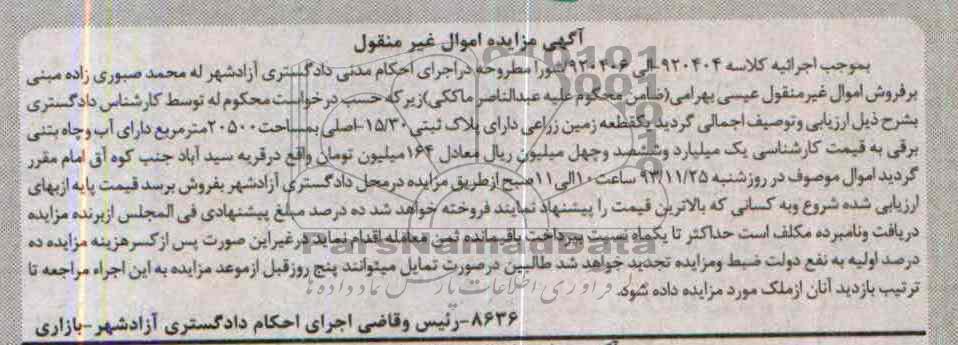 آگهی مزایده اموال غیر منقول
بموجب اجرائیه کلاسه ۹۲۰۴۰۴-الی ۹۲۰۴۰۶/شورا مطروحه دراجرای احکام مدنی دادگستری آزادشهر له محمد صبوری زاده مبنی
برفروش اموال غیرمنقول عیسی بهرامی(ضامن محکوم علیه عبدالناصر ماککی)زیرکه حسب درخواست محکوم له توسط کارشناس دادگستری
بشرح ذیل ارزیابی وتوصیف اجمالی گردید یکقطعه زمین زراعی دارای پلاک ثبتی ۱۵/۳۰-اصلی بمساحت ۲۰۵۰۰مترمربع دارای آب وچاه بتنی
برقی به قیمت کارشناسی یک میلیارد وششصد وچهل میلیون ریال معادل ۱۶۴میلیون تومان واقع درقریه سید آباد جنب کوه آق امام مقرر
گردید اموال موصوف در روزشنبه ۹۳/۱۱/۲۵ ساعت ۱۰الی۱۱صبح ازطریق مزایده درمحل دادگستری آزادشهر بفروش برسد قیمت پایه ازبهای
ارزیابی شده شروع وبه کسانی که بالاترین قیمت را پیشنهاد نمایند فروخته خواهد شد ده درصد مبلغ پیشنهادی فی المجلس ازبرنده مزایده
دریافت ونامبرده مکلف است حداکثر تا یکماه نسبت بپرداخت باقیمانده ثمن معامله اقدام نماید درغیراین صورت پس ازکسرهزینه مزایده ده
درصد اولیه به نفع دولت ضبط ومزایده تجدید خواهد شد طالبین درصورت تمایل میتوانند پنج روزقبل ازموعد مزایده به این اجراء مراجعه تا
ترتیب بازدید آنان ازملک مورد مزایده داده شود.
۸۶۳۶-رئیس وقاضی اجرای احکام دادگستری آزادشهر-بازاری